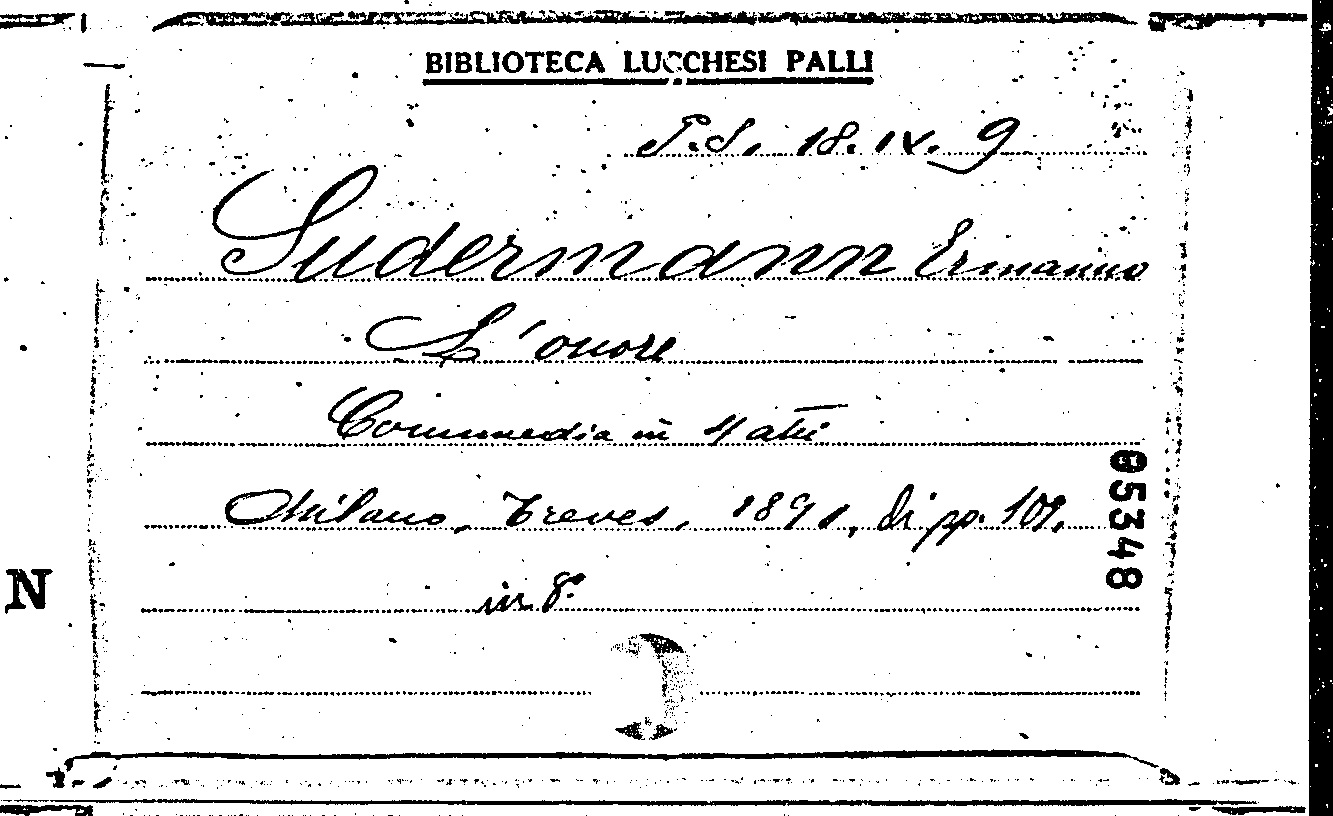 BIBLIOTECA LUCCHESI PALLI
P.S. 18. IX. 9
Sudermann Ermanno
L'onore
Commedia in 4 atti
Milano, Treves, 1891, di pp. 109,
in 8°
05348
N